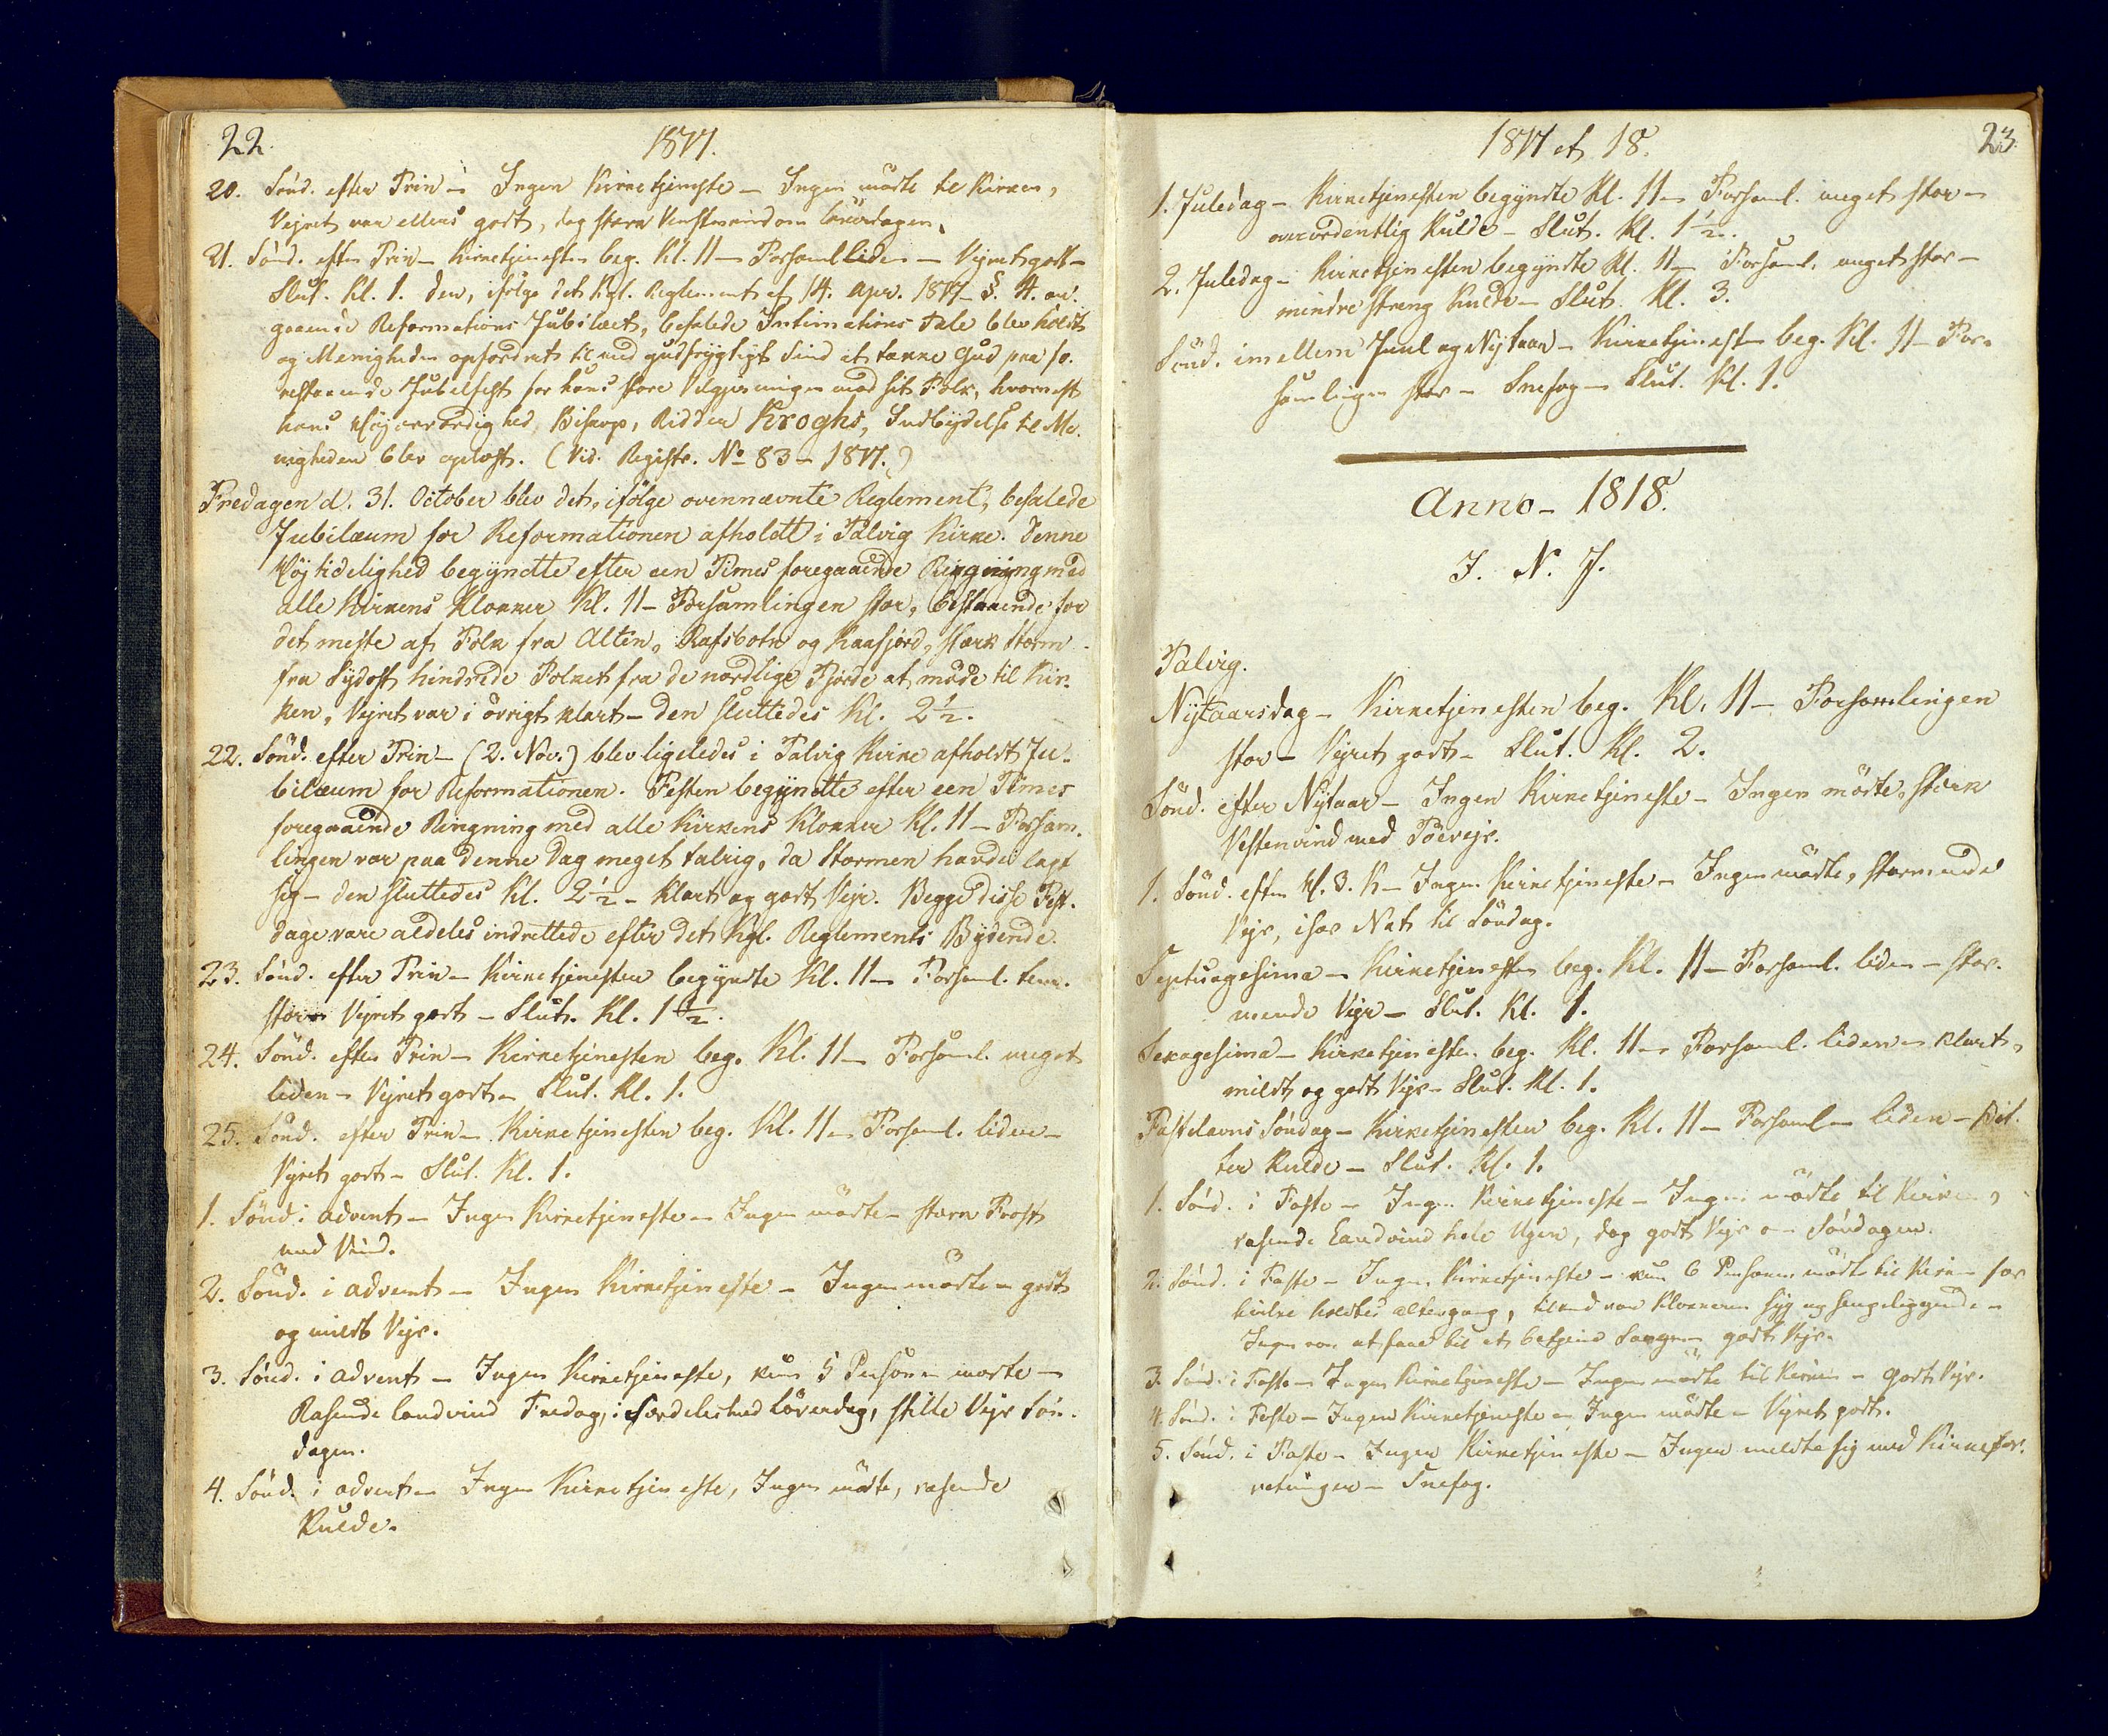 22.
1817.
20. Sönd. efter Trin - Ingen Kirketjeneste - Ingen mödte til Kirken,
Vejret var ellers godt, dog stærk Vestenvind om Lөverdagen.
21. Sönd. efter Trin - Kirketjenesten beg. Kl. 11 - Forsaml liden - Vejret godt -
Slut. Kl. 1. Den, ifölge det Kgl. Reglement af 14. Apr. 1817 - §. 4. an-
gaaende Reformations Jubilæet, befalede Intimations Tale blev holdt
og Menigheden opfordret til med gudfrygtigt Sind at takke Gud paa fo-
restaaende Jubelfest for hans store Velgjerninger mod sit Folk, hvornæst
hans Höjærværdighed, Biskop, Ridder Kroghs, Indbydelse til Me-
nigheden blev oplæst. (Vid. Registr. No 83 - 1817.)
Fredagen d. 31. October blev det, ifölge ovennævnte Reglement, befalede
Jubilæum for Reformationen afholdt i Talvig Kirke. Denne
Höjtidelighed begyndte efter een Times foregaaende Ringning med
alle Kirkens Klokker Kl. 11 - Forsamlingen stor, bestaaende for
det meste af Folk fra Alten, Rafsbotn og Kaafjord, stærk Storm
fra Sydost hindrede Folket fra de nordlige Fjorde at möde til Kir-
ken, Vejret var i övrigt klart - den sluttedes Kl. 2 1/2.
22. Sönd. efter Trin - (2. Nov.) blev ligeledes i Talvig Kirke afholdt Ju-
bilæum for Reformationen. Festen begyndte efter een Times
foregaaende Ringning med alle Kirkens Klokker Kl. 11 - Forsam-
lingen var paa denne Dag meget talrig, da Stormen havde lagt
sig - den sluttedes Kl. 2 1/2 - klart og godt Vejr. Begge disse Fest-
dage vare aldeles indrettede efter det Kgl. Reglements Bydende.
23. Sönd. efter Trin - Kirketjenesten begyndte Kl. 11 - Forsaml. tem.
stor - Vejret godt - Slut. Kl. 1 1/2.
24. Sönd. efter Trin - Kirketjenesten beg. Kl. 11 - Forsaml. meget
liden - Vejret godt - Slut. Kl. 1.
25. Sönd. efter Trin - Kirketjenesten beg. Kl. 11 - Forsaml. liden -
Vejret godt - Slut. Kl. 1.
1. Sönd. i Advent - Ingen Kirketjeneste - Ingen mödte - stærk Frost
med Vind.
2. Sönd. i Advent - Ingen Kirketjeneste - Ingen mödte - godt
og mildt Vejr.
3. Sönd. i Advent - Ingen Kirketjeneste, kun 5 Personer mödte -
Rasende Landvind Fredag, i Særdeleshed Löverdag, stille Vejr Sön-
dagen.
4. Sönd. i Advent - Ingen Kirketjeneste, Ingen mödte, rasende
Kulde.
1817 et 18.
23.
1. Juledag - Kirketjenesten begyndte Kl. 11 - Forsaml. meget stor -
overordentlig Kulde - Slut. Kl. 1 1/2.
2. Juledag - Kirketjenesten begyndte Kl. 11 - Forsaml. meget stor -
mindre streng Kulde - Slut. Kl. 3.
Sönd. imellem Juul og Nytaar - Kirketjenesten beg. Kl. 11 - For-
samlingen stor - Snefog - Slut. Kl. 1.
Anno - 1818.
I. N. J.
Talvig.
Nytaarsdag - Kirketjenesten beg. Kl. 11 - Forsamlingen
stor - Vejret godt - Slut. Kl. 2.
Sönd. efter Nytaar - Ingen Kirketjeneste - Ingen mödte, stærk
Vestenvind med Töevejr.
1. Sönd. efter H. 3. K - Ingen Kirketjeneste - Ingen mödte, stormende
Vejr, især Nat til Söndag.
Septuagesima - Kirketjenesten beg. Kl. 11 - Forsaml. liden - stor-
mende Vejr - Slut. Kl. 1.
Sexagesima - Kirketjenesten beg. Kl. 11 - Forsaml. liden - klart,
mildt og godt Vejr - Slut. Kl. 1.
Fastelavns Söndag - Kirketjenesten beg. Kl. 11 - Forsaml - liden - bit-
ter Kulde - Slut. Kl. 1.
1. Sönd. i Faste - Ingen Kirketjeneste - Ingen mödte til Kirken,
rasende Landvind hele Ugen, dog godt Vejr om Söndagen.
2. Sönd. i Faste - Ingen Kirketjeneste - kun 6 Personer mödte til Kirken for
hvilke holdtes Altergang, tilmed var Klokkeren syg og sengeliggende -
Ingen var at faae til at betjene Sangen - godt Vejr.
3. Sönd. i Faste - Ingen Kirketjeneste - Ingen mödte til Kirken - godt Vejr.
4. Sönd. i Faste - Ingen Kirketjeneste - Ingen mödte - Vejret godt.
5. Sönd. i Faste - Ingen Kirketjeneste - Ingen meldte sig med Kirkefor-
retninger - Snefog.